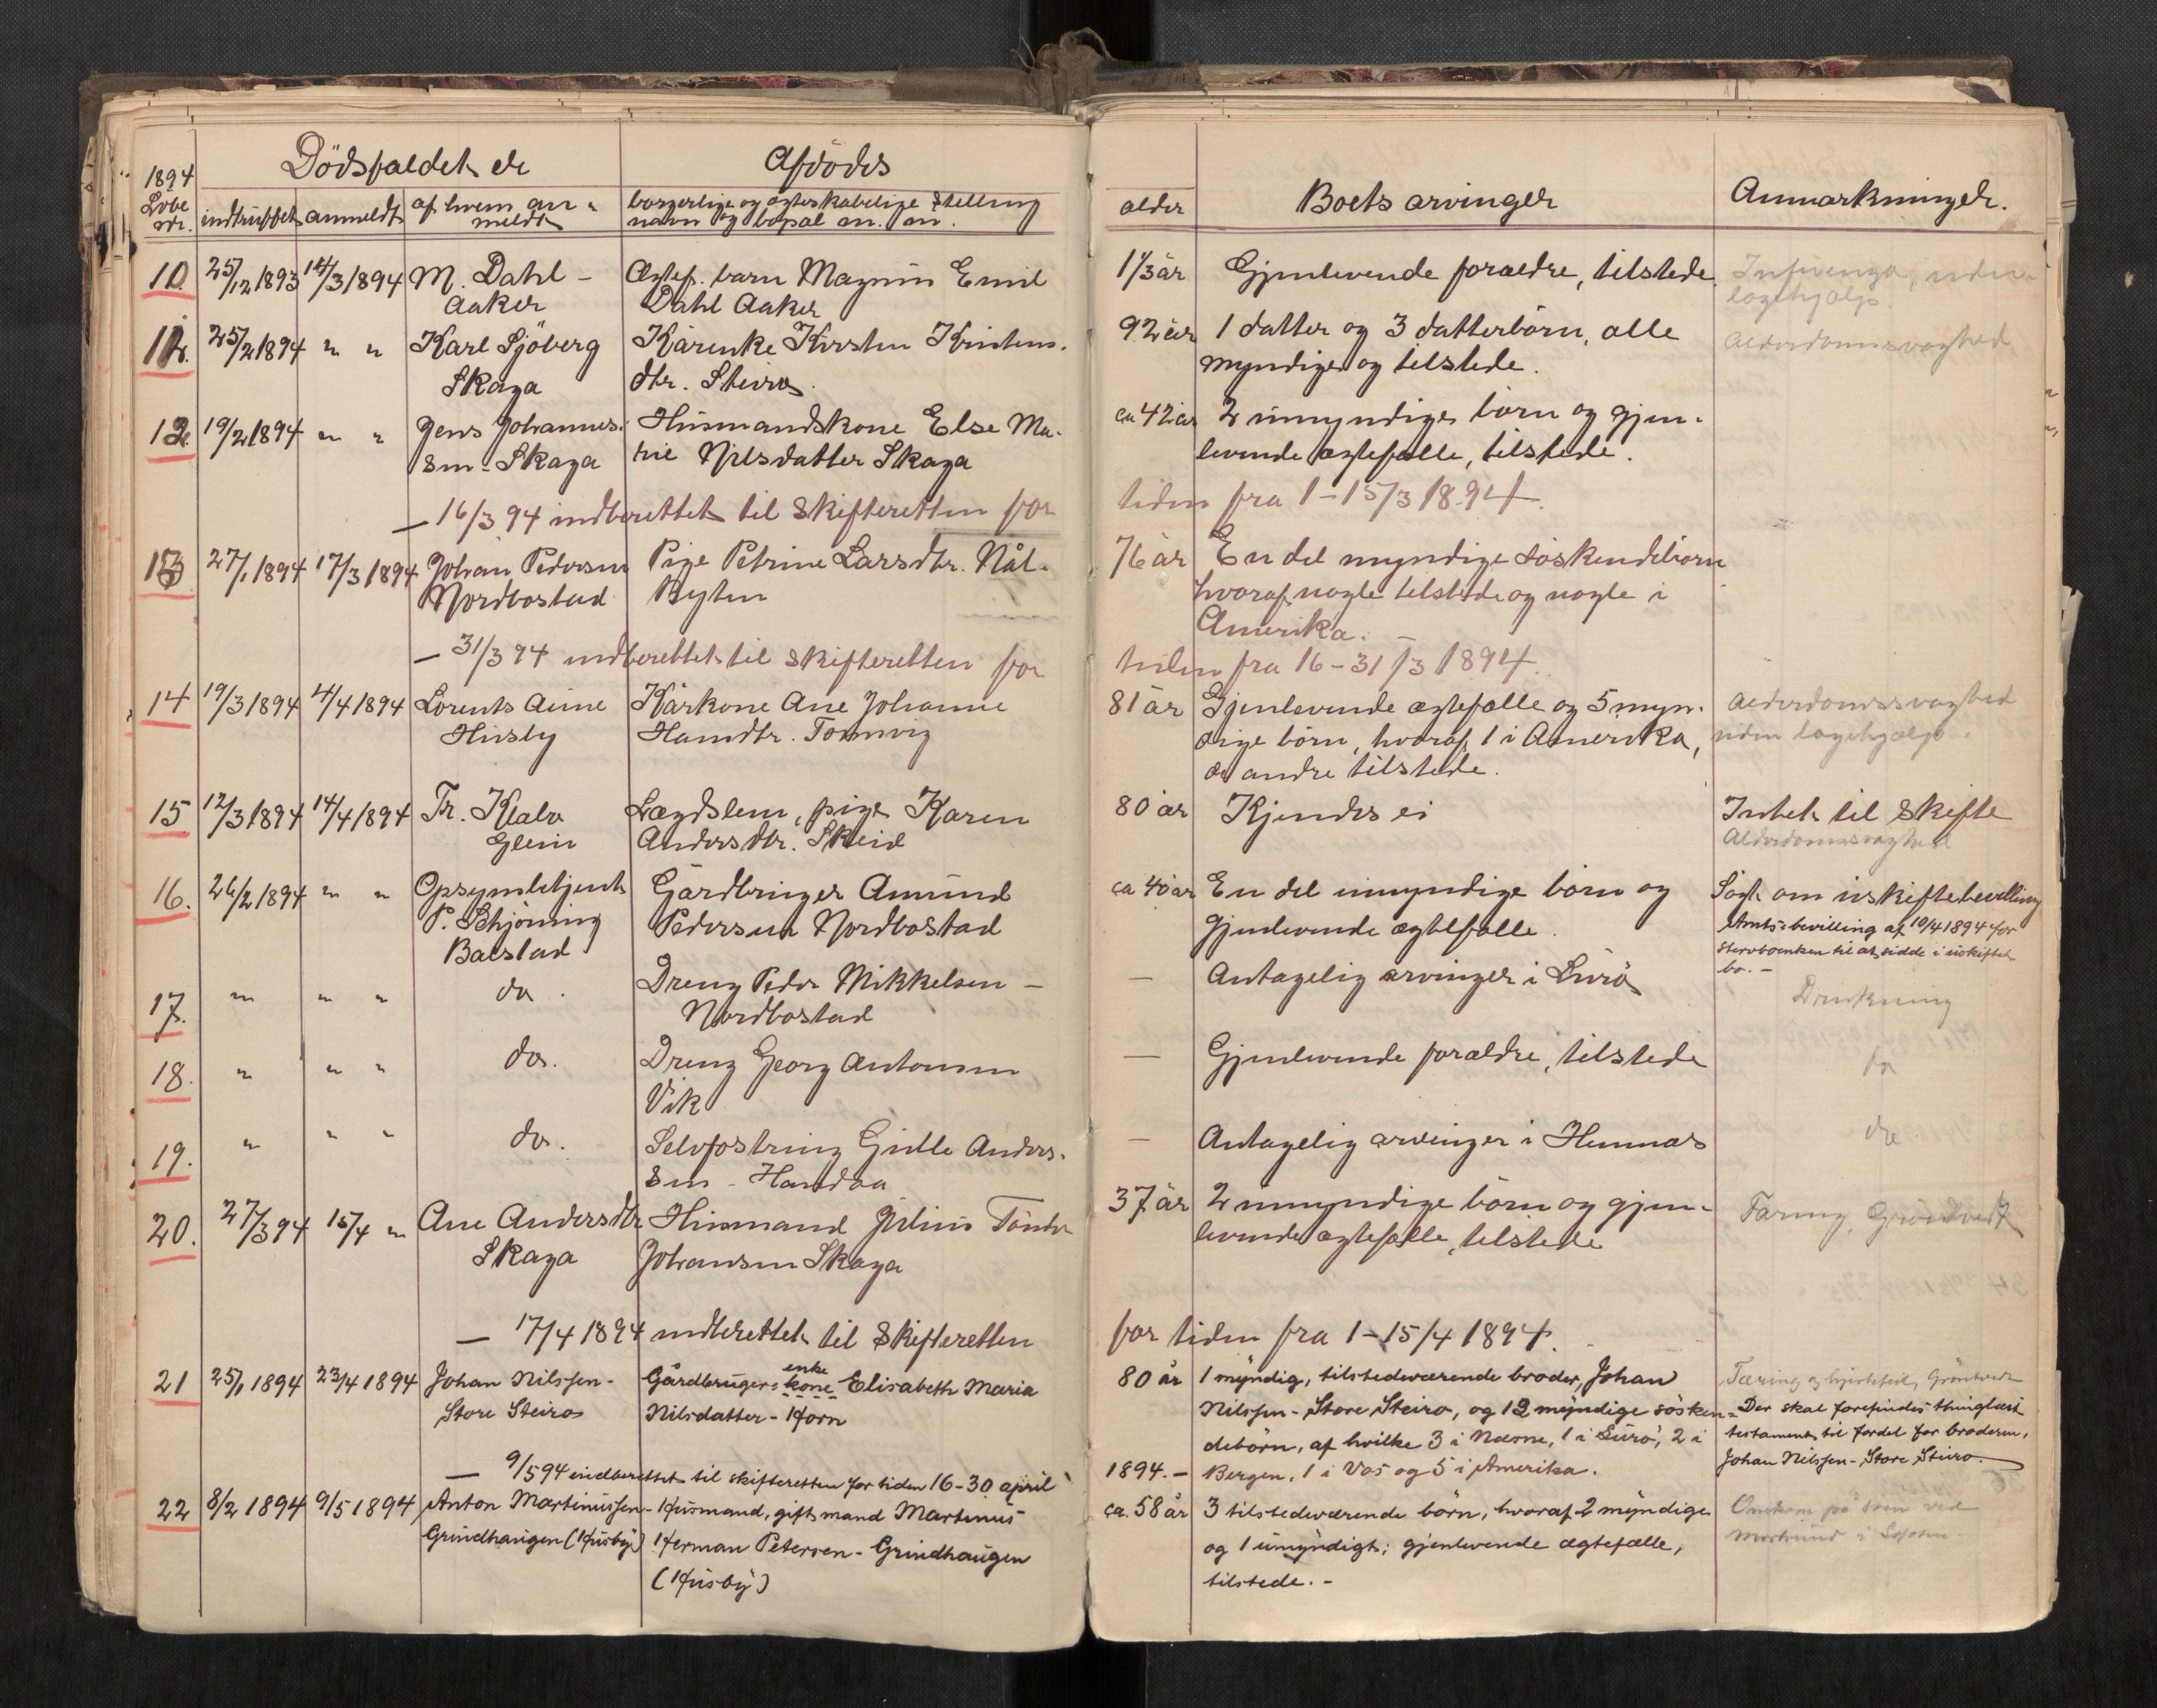 1894
Dödsfaldet er
Afdödes
Löbe nr.
indtruffet
anmeldt
af hvem an-
meldt
borgerlige og ægteskabelige stilling
navn og bopæl m. m.
alder
Boets arvinger
Anmærkninger.
10 25/12 1893 15/3 1894 M. Dahl - Ægtef. barn Magnus Emil 1 1/3 år Gjenlevende forældre, tilstede. Influenza, uden
Aaker Dahl Aaker lægehjælp.
11. 25/2 1894 " " Karl Sjöberg Kärenke Kirsten Kristens- 92 år 1 datter og 3 datterbörn, alle Alderdomssvaghed
Skaga dtr. Steiro. myndige og tilstede.
12. 19/2 1894 " " Jens Johannes- Husmandskone Else Ma- ca 42 år 2 umyndige börn og gjen-
sen - Skaga rie Nilsdatter Skaga levende ægtefælle, tilstede.
— 16/3 94 indberettet til skifteretten for tiden fra 1-15/3 1894.
13 27/1 1894 17/3 1894 Johan Pedersen Pige Petrine Larsdtr. Nål- 76 år En del myndige söskendebörn
Nordbostad Byten hvoraf nogle tilstede og nogle i
Amerika. —
— 31/3 94 indberettet til skifteretten for tiden fra 16-31/3 1894.
14 19/3 1894 4/4 1894 Lorents Aune Kårkone Ane Johanne 81 år Gjenlevende ægtefælle og 5 myn- Alderdomssvaghed
Husby Hansdtr. Tomvig dige börn, hvoraf 1 i Amerika, uden lægehjælp.
de andre tilstede.
15 12/3 1894 14/4 1894 Tr. Klabo Lægdslem, pige Karen 80 år Kjendes ei Intet til skifte
Glein Andersdtr. Skeid Alderdomssvaghed
16. 26/2 1894 " " Opsynsbetjent Gårdbruger Amund ca 40 år En del umyndige börn og Sögt om uskiftebevilling
P. Schjöning Pedersen Nordbostad gjenlevende ægtefælle. Amtsbevilling af 10/4 1894 for
Balstad stervboenken til at sidde i uskiftet
bo. -
17. " " " do. Dreng Peder Mikkelsen - — Antagelig arvinger i Lurö Drukning
Nordbostad
18. " " " do. Dreng Georg Antonsen — Gjenlevende forældre, tilstede do
Vik
19. " " " do. Selvfostring Gulle Anders- — Antagelig arvinger i Hemnæs do
sen - Handaa
20. 27/3 94 15/4 " Ane Andersdtr Husmand Julius Tönder 37 år 2 umyndige börn og gjen- Tæring, Gröntvedt
Skaga Johansen Skaga levende ægtefælle, tilstede
— 17/4 1894 indberettet til skifteretten for tiden fra 1-15/4 1894.
21 25/1 1894 23/4 1894 Johan Nilssen- Gårdbrugers kone enke Elisabeth Maria 80 år 1 myndig, tilstedeværende broder, Johan Tæring og hjertefeil, Gröntvedt
Store Steiro Nilsdatter - Horn Nilssen - Store Steiro, og 12 myndige sösken- Der skal forefindes thinglæst
debörn, af hvilke 3 i Næsne, 1 i Lurö, 2 i testament til fordel for broderen,
— 9/5 94 indberettet til skifteretten for tiden 16-30 april 1894. - Bergen, 1 i Vos og 5 i Amerika. Johan Nilssen - Store Steiro.
22 8/2 1894 9/5 1894 Anton Martinussen- Husmand, gift mand Martinus ca. 58 år 3 tilstedeværende börn, hvoraf 2 myndige Omkom på sjöen ved
Grindhaugen (Husby) Herman Petersen - Grindhaugen og 1 umyndigt; gjenlevende ægtefælle,
(Husby) tilstede. -